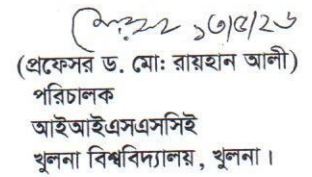 ১৩/৫/২৬
(প্রফেসর ড. মো: রায়হান আলী)
পরিচালক
আইআইএসএসসিই
খুলনা বিশ্ববিদ্যালয়, খুলনা।